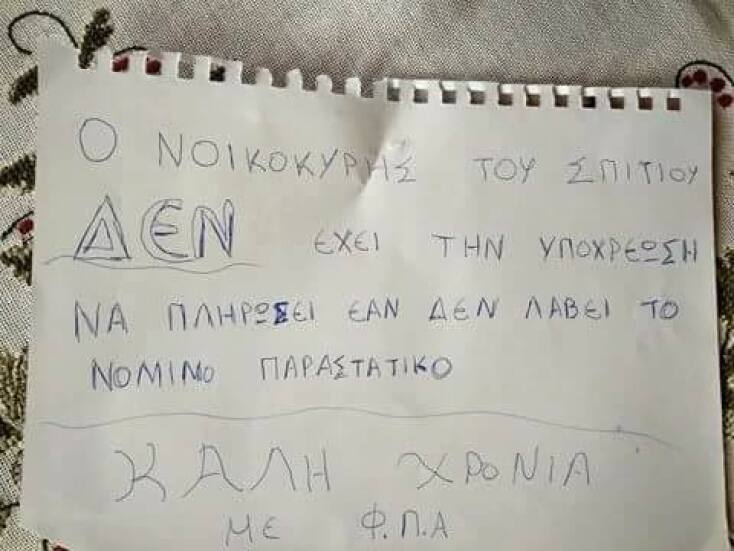 Ο ΝΟΙΚΟΚΥΡΗΣ ΤΟΥ ΣΠΙΤΙΟΥ
ΔΕΝ ΕΧΕΙ ΤΗΝ ΥΠΟΧΡΕΩΣΗ
ΝΑ ΠΛΗΡΩΣΕΙ ΕΑΝ ΔΕΝ ΛΑΒΕΙ ΤΟ
ΝΟΜΙΜΟ ΠΑΡΑΣΤΑΤΙΚΟ
ΚΑΛΗ ΧΡΟΝΙΑ
ΜΕ Φ.Π.Α